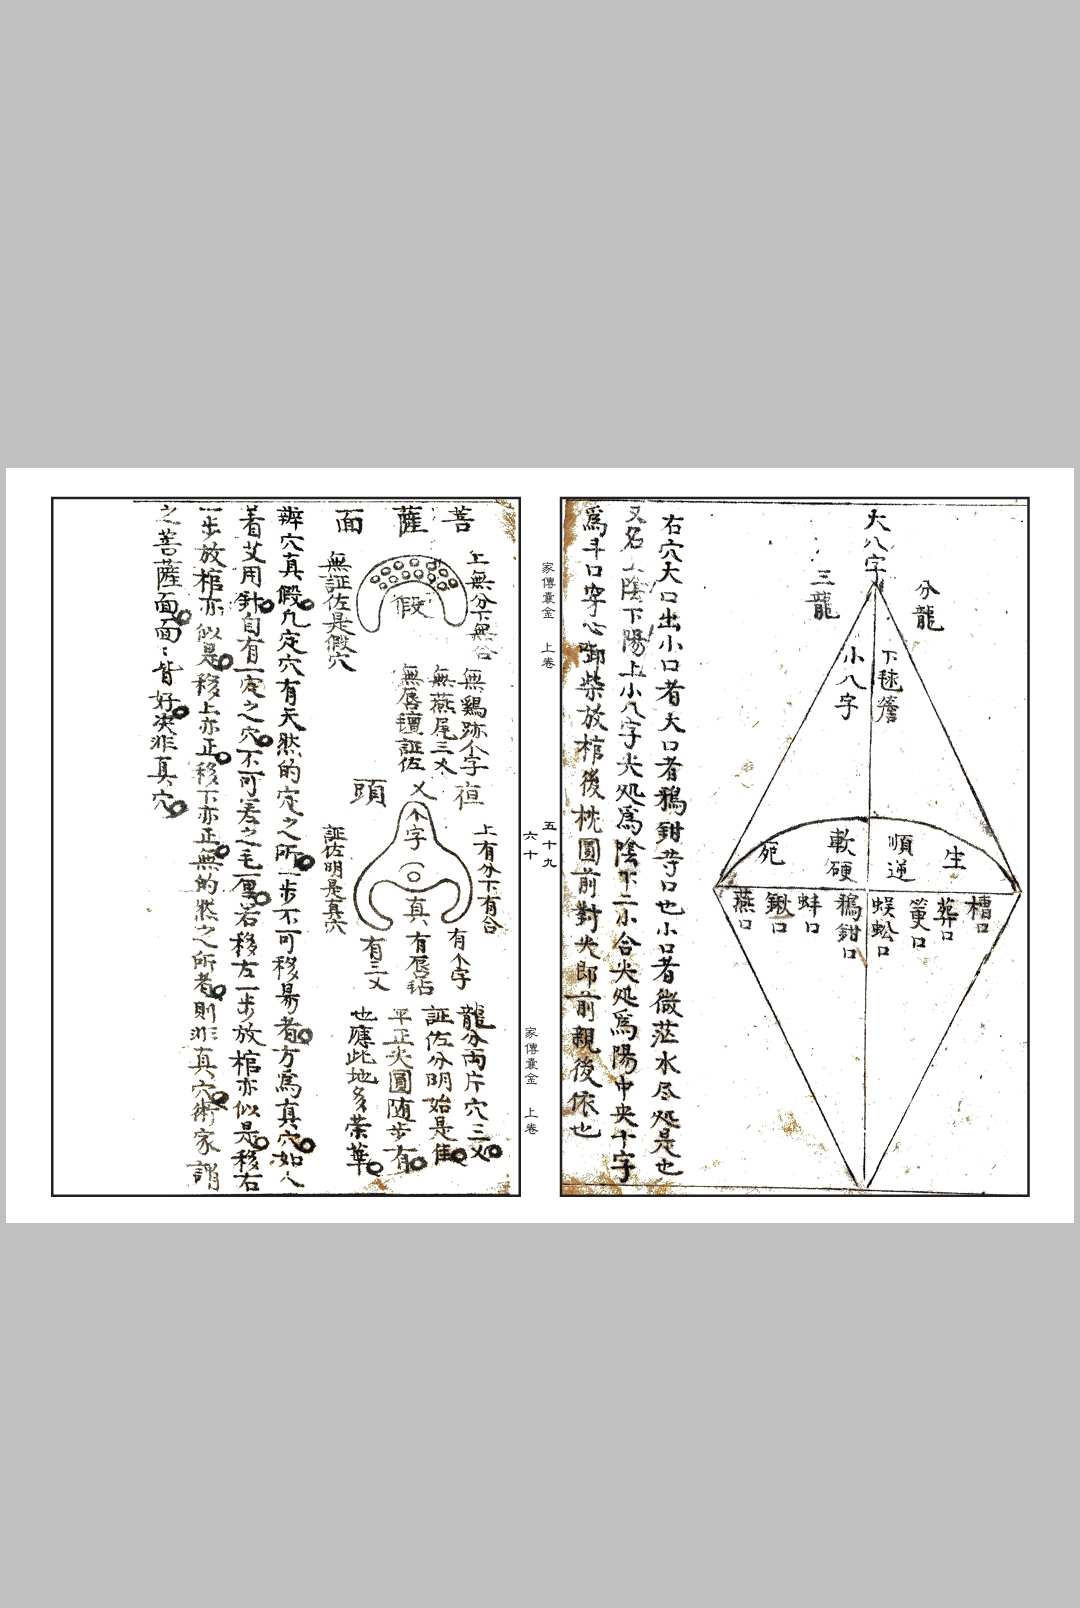 大八字
分龍
三龍
下毬簷
小八字
生
順逆
軟硬
死
槽口
葬口
蜈蚣口
鵶鉗口
蚌口
鍬口
燕口
右穴大口出小口者大口者鵶鉗等口也小口者微茫水尽処是也
又名 陰下陽上小八字尖処爲陰下二小合尖処爲陽中央十字
爲斗口穿心御柴放棺後枕圓前對尖即前親後依也
家傳囊金 上卷 五十九
家傳囊金 上卷 六十
菩薩面
上無分下無合
假
無証佐是假穴
無鷄跡个字
無燕尾三乂
無唇氊証佐
乂頭
上有分下有合
个字
真
証佐明是真穴
有个字
有唇毡
有三乂
龍分両片穴三乂
証佐分明始是佳
平正尖圓随步有
也應此地多荣華
辨穴真假凢定穴有天然的定之所一步不可移易者方爲真穴如人
着艾用針自有一定之穴不可差之毛厘若移左一步放棺亦似是移右
一步放棺亦似是移上亦正移下亦正無的然之所者則非真穴術家謂
之菩薩面面:皆好决非真穴